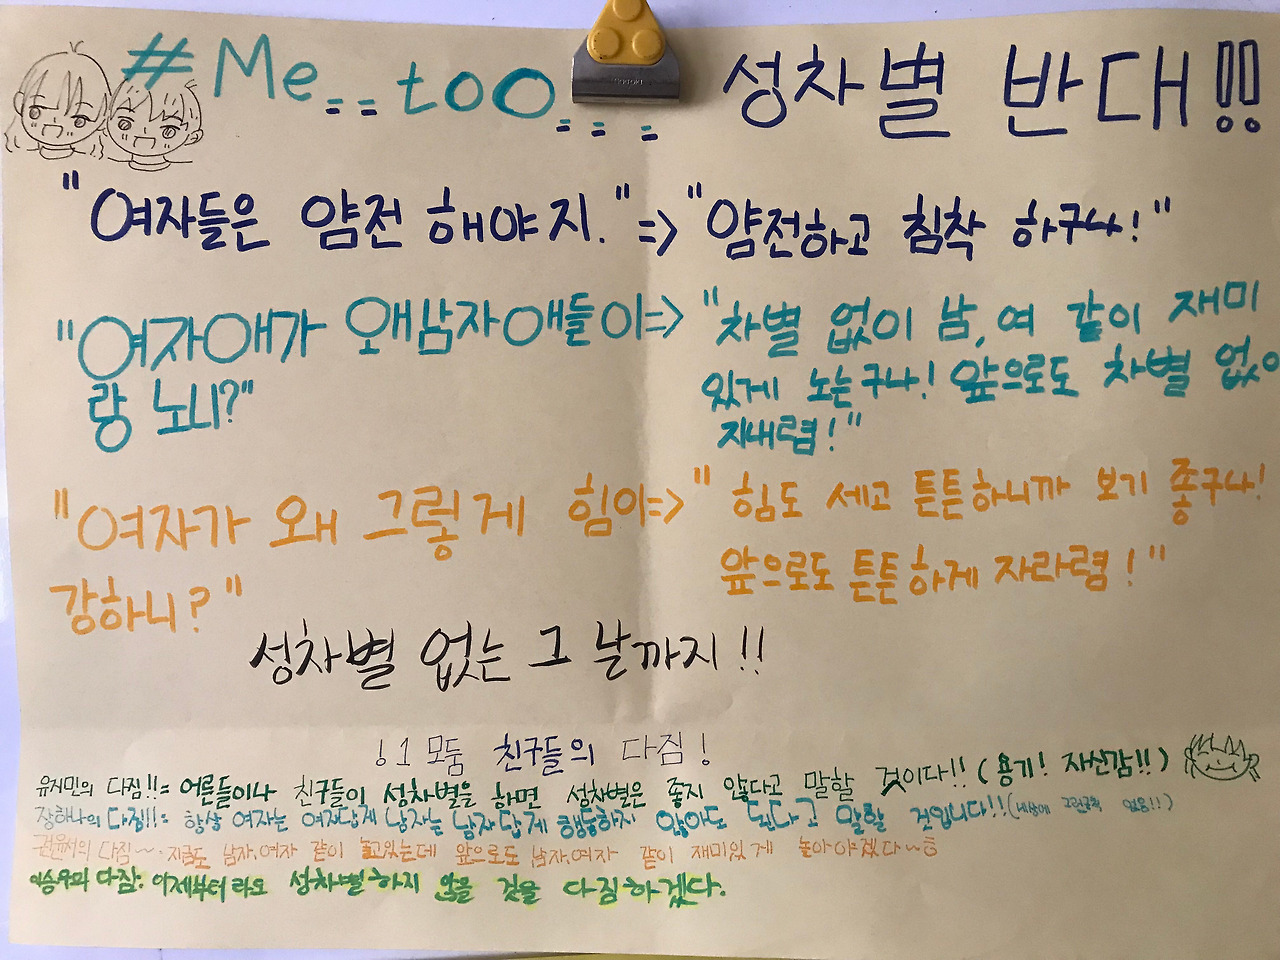 #Me.. too... 성차별 반대!!
"여자들은 얌전 해야지." => "얌전하고 침착 하구나!"
"여자애가 왜 남자애들이 => "차별 없이 남,여 같이 재미
랑 노니?" 있게 노는구나! 앞으로도 차별 없이
지내렴!"
"여자가 왜 그렇게 힘이 => "힘도 세고 튼튼하니까 보기 좋구나!
강하니?" 앞으로도 튼튼하게 자라렴!"
성차별 없는 그 날까지!!
!1모둠 친구들의 다짐!
유저민의 다짐!!= 어른들이나 친구들이 성차별을 하면 성차별은 좋지 않다고 말할 것이다!! (용기! 자신감!!)
장하나의 다짐!!= 항상 여자는 여자답게 남자는 남자답게 행동하지 않아도 된다고 말할 것입니다!! (세상에 그런규칙 없음!!)
권유서의 다짐~ 지금도 남자,여자 같이 놀고있는데 앞으로도 남자,여자 같이 재미있게 놀아야겠다~
이승우의 다짐: 이제부터라도 성차별하지 않을 것을 다짐하겠다.